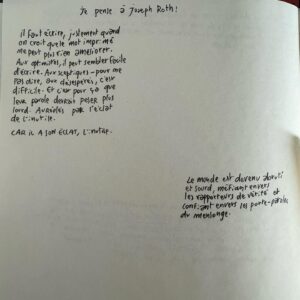 Je pense à Joseph Roth!
il faut écrire, justement quand
on croit que le mot imprimé
ne peut plus rien améliorer.
Aux optimistes, il peut sembler facile
d'écrire. Aux sceptiques – pour ne
pas dire, aux désespérés, c'est
difficile. Et c'est pour ça que
leur parole devrait peser plus
lourd. Auréolés par l'éclat
de l'inutile.
CAR IL A SON ECLAT, L'inutile.
Le monde est devenu abouti
et sourd, méfiant envers
les rapporteurs de vérité et
confiant envers les porte-paroles
du mensonge.